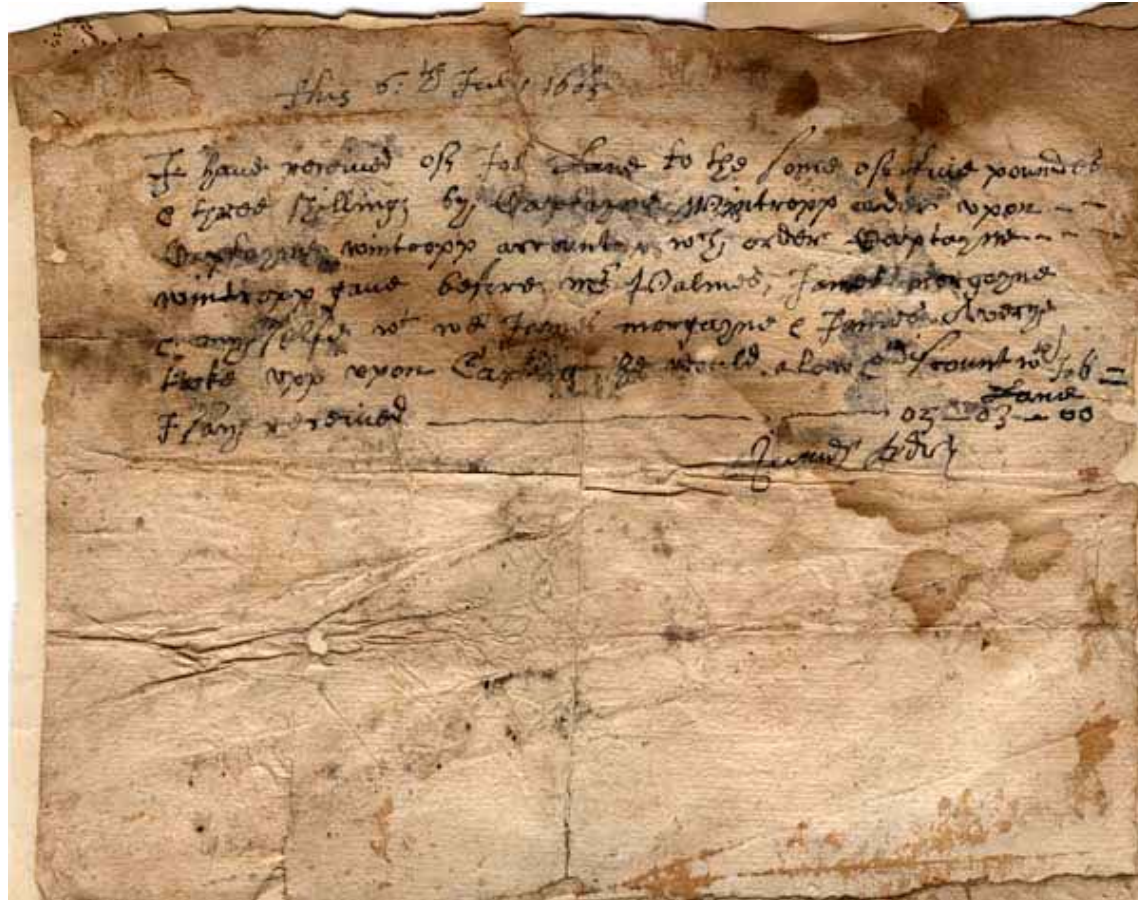 this 6: th July 1665
I have received of Job Lane to the some of five poundes
& three shillings by Captayne Wintropp order vpon
Captayne wintropp account wch order Captayne
wintropp gaue before mr Palmes, James morgayne
& my selfe James morgayne & James Avery
tooke vpp vpon he would alow & discount wth Job
Lane
I say received 05 - 03 - 00
James Avery